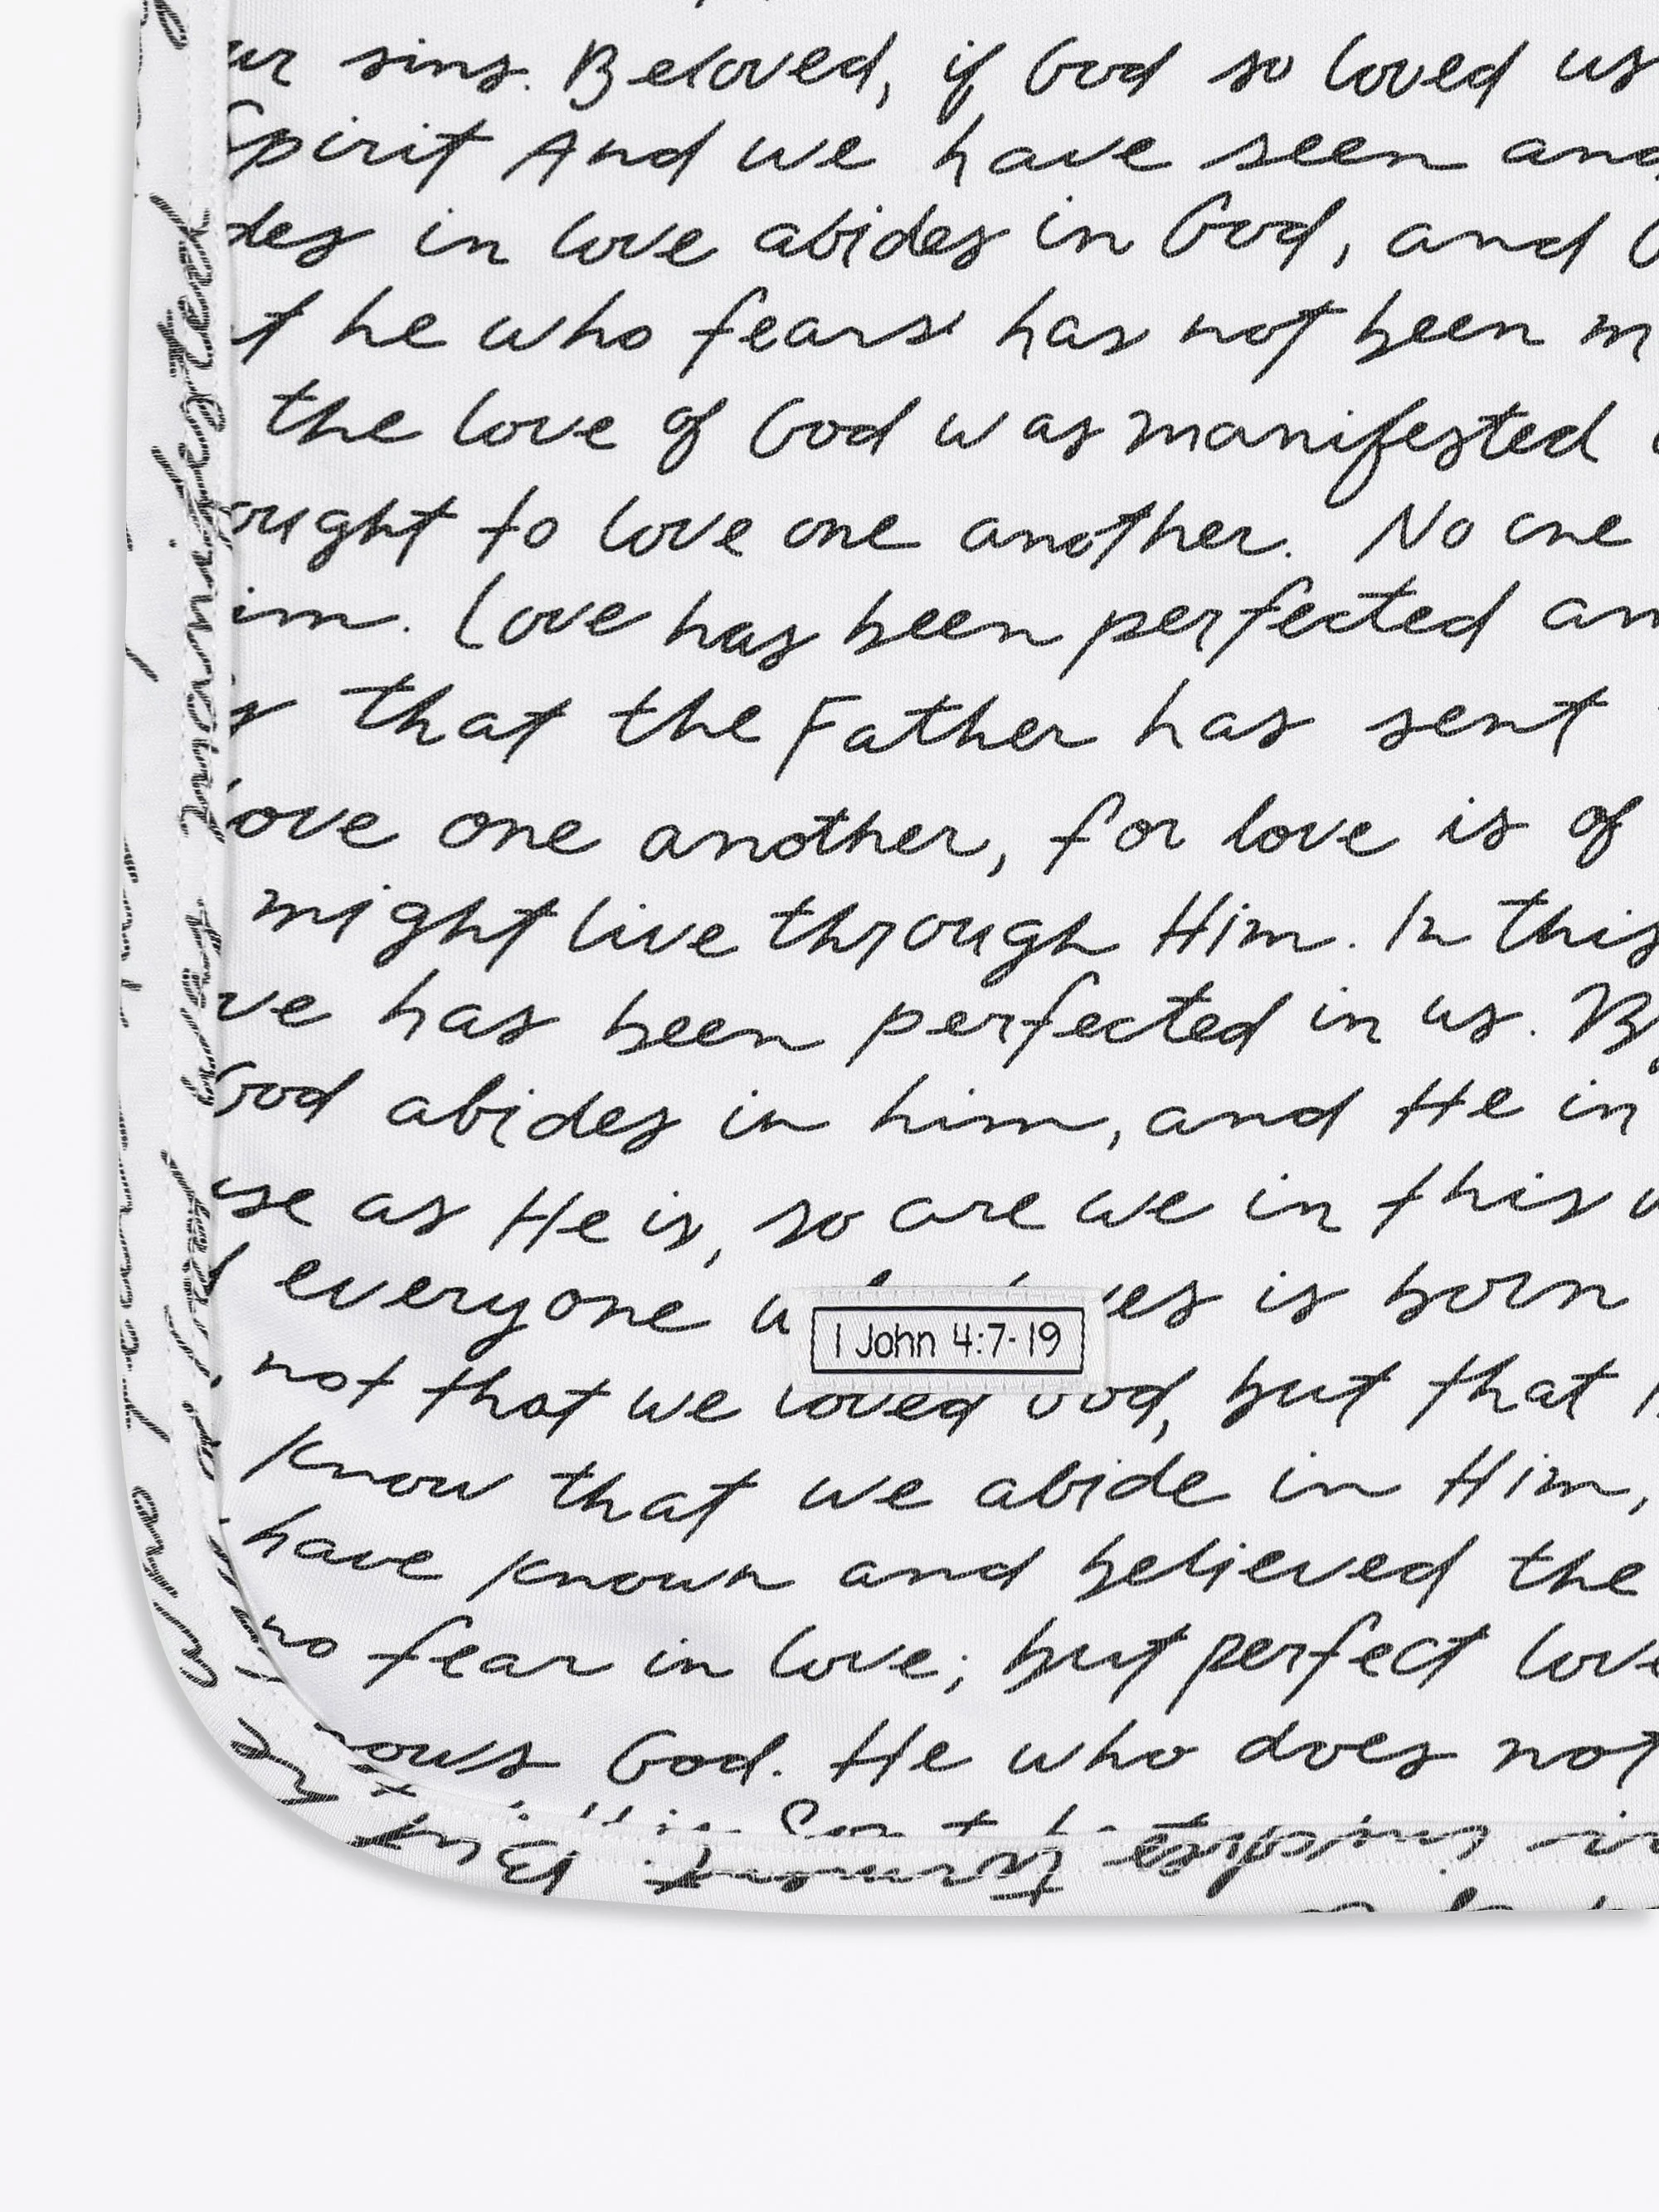 sins. Beloved, if God so loved us
Spirit And we have seen and
in love abides in God, and
he who fears has not been
the love of God was manifested
ought to love one another. No one
Love has been perfected
that the Father has sent
love one another, for love is of
might live through Him. In this
has been perfected in us.
God abides in him, and He in
as He is, so are we in this
everyone is born
1 John 4:7-19
not that we loved God, but that
know that we abide in Him,
have known and believed the
no fear in love; but perfect love
God. He who does not
manifested
was